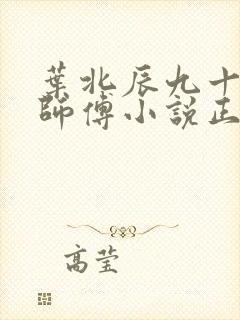 葉北辰九十
師傅小說正
高莹